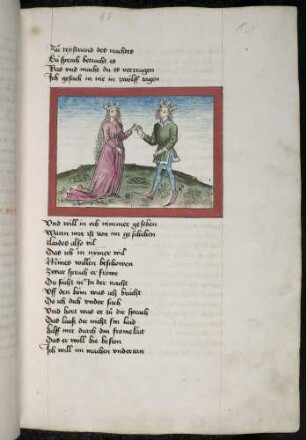 Zu trystrand des nachtes
Er sprach betracht es
Was vnd macht du es vertragen
Ich gesach in nie in zwolff tagen
Vnd will in och nimmer gesehen
Wann mir ist von im geschehen
Laides also vil
Das ich in nymer wil
Mines willen beschowen
Zwar sprach er frowe
Du sichst in in der nacht
Vff den bom was ich bracht
Do ich dich vnder sach
Vnd hort was er zu dir sprach
Das lausz dir nicht sin laid
hilff mir durch din fromekait
Das er woll hie besten
Ich will im machen vndertan